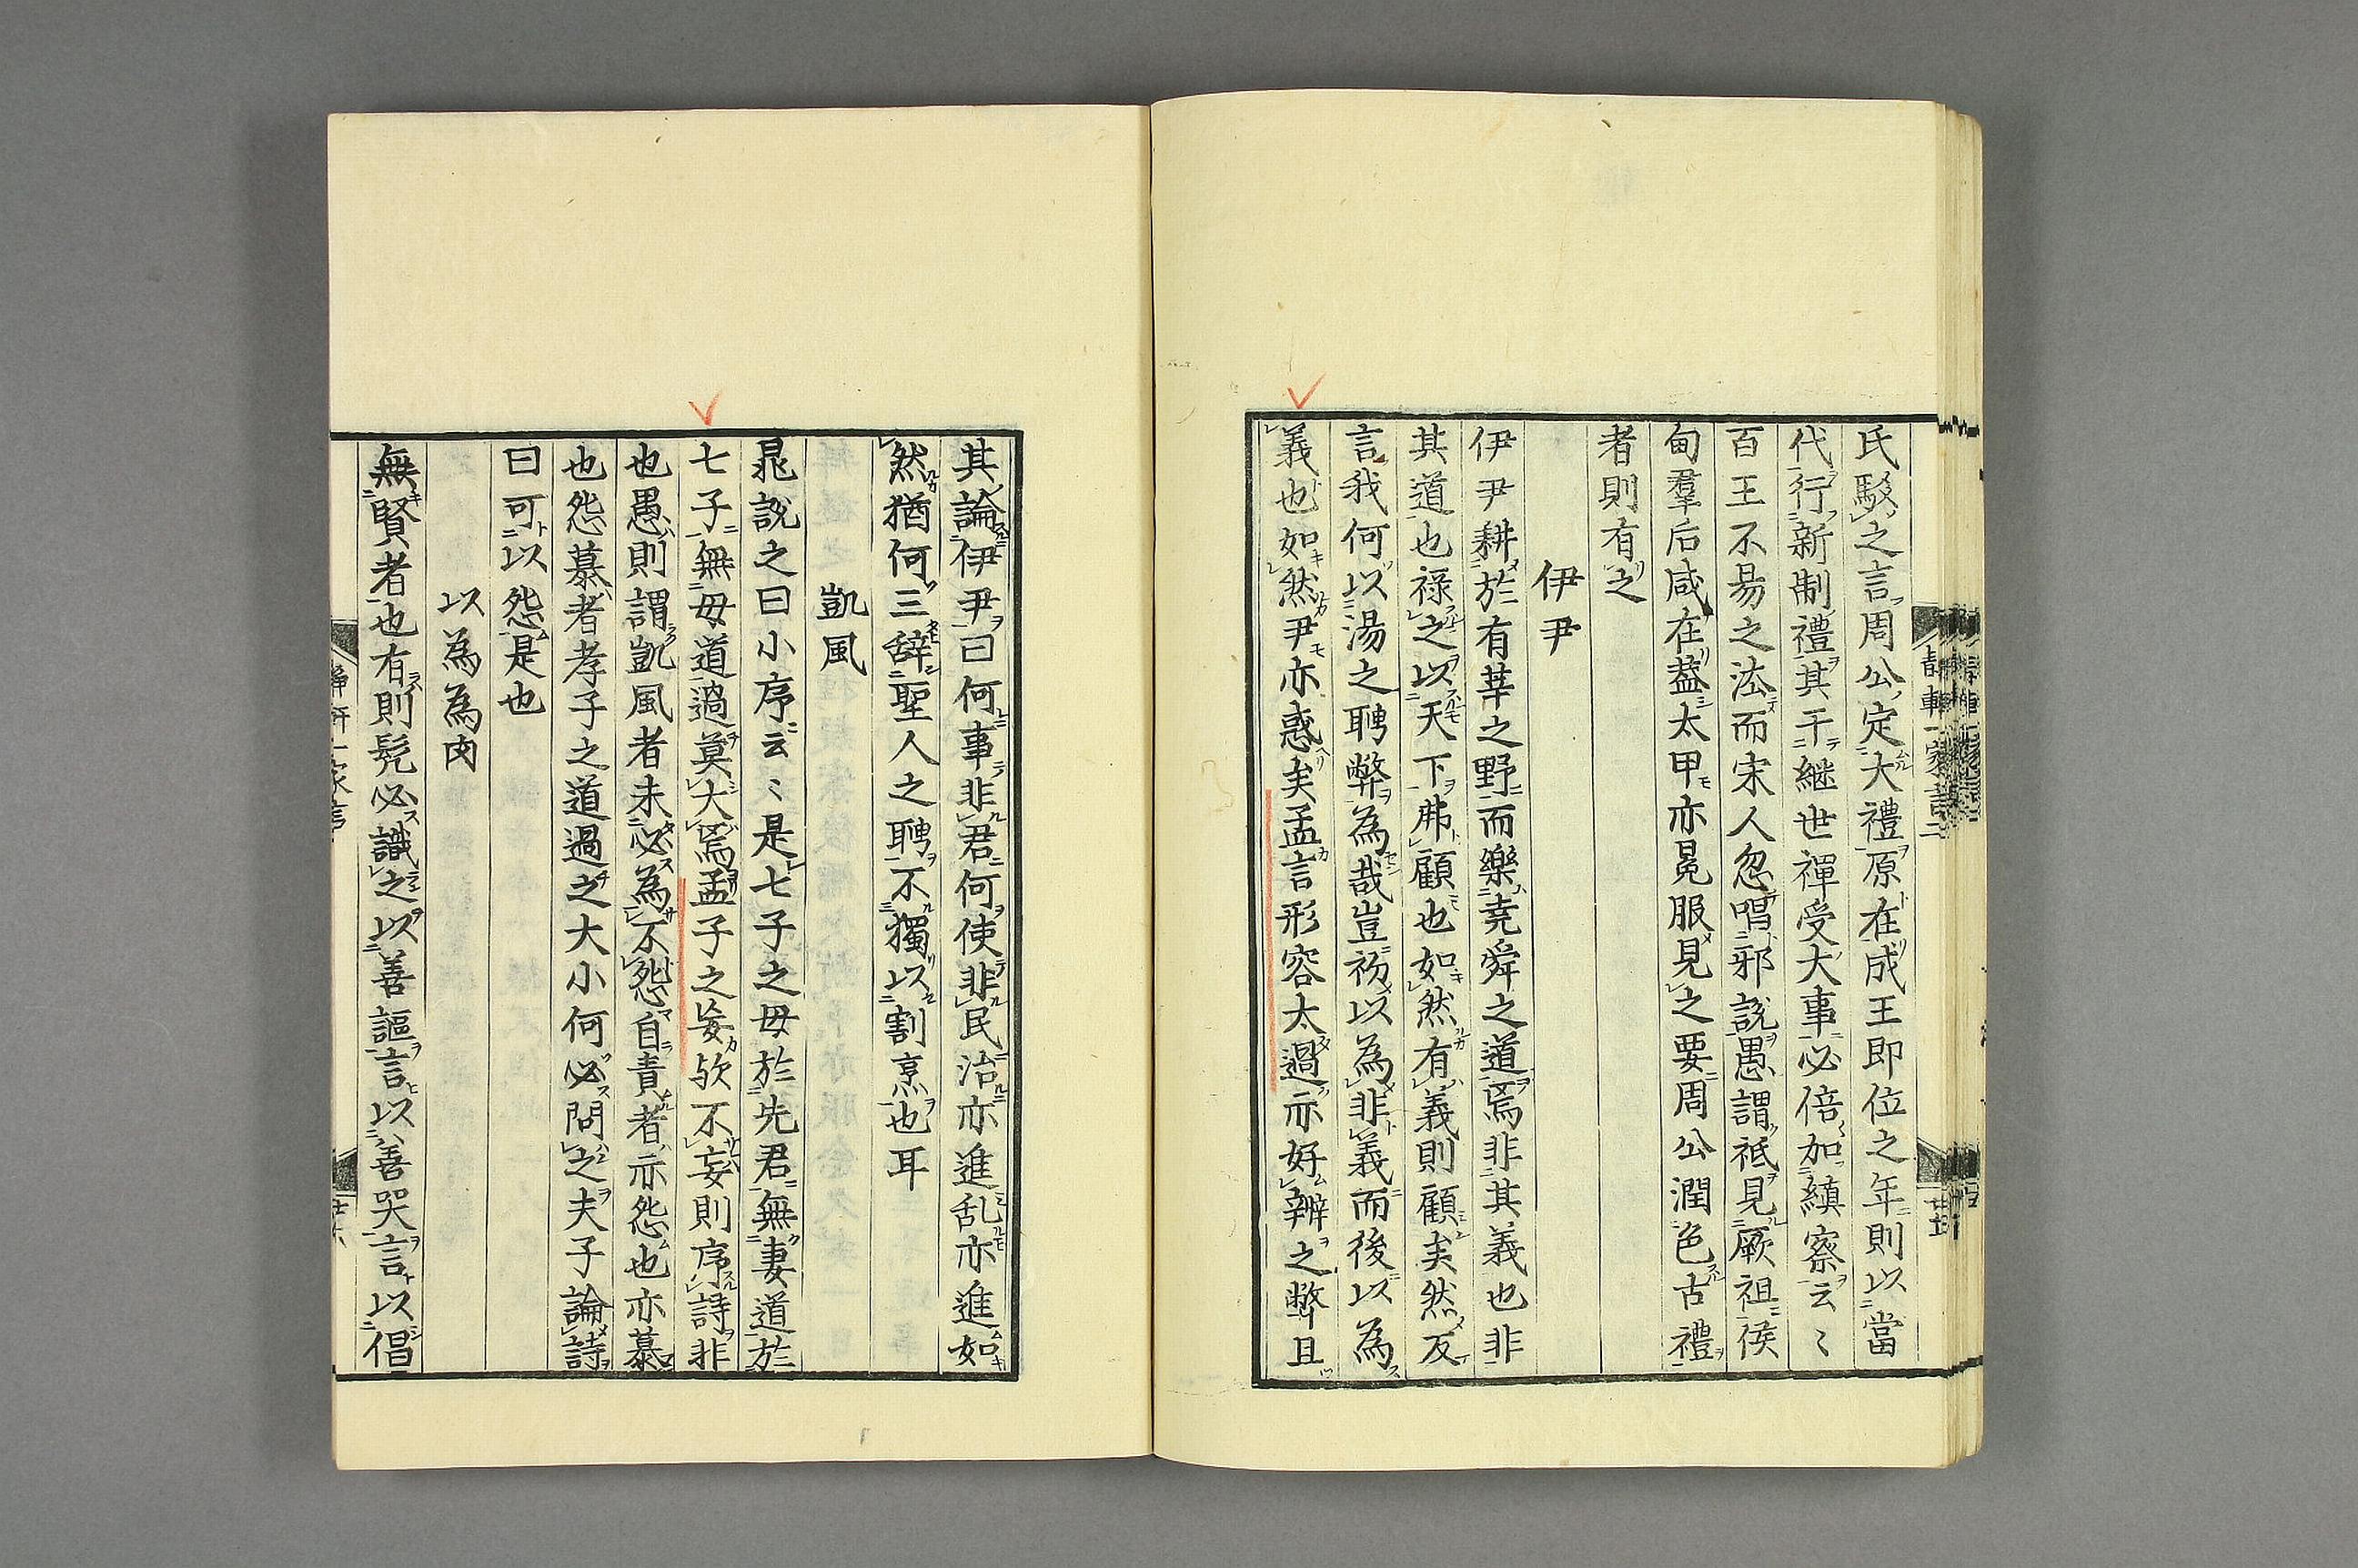 氏駁之言周公定大禮原在成王即位之年則以當
代行新制禮其干継世禪受大事必倍加縝察云〻
百王不易之法而宋人忽唱邪説愚謂祗見厥祖侯
甸羣后咸在葢太甲亦冕服見之要周公潤色古禮
者則有之
伊尹
伊尹耕於有莘之野而樂堯舜之道焉非其義也非
其道也禄之以天下弗顧也如然有義則顧矣然反
言我何以湯之聘弊為哉豈初以為非義而後以為
義也如然尹亦惑矣孟言形容太過亦好辨之弊且
其論伊尹曰何事非君何使非民治亦進乱亦進如
然猶何三辞聖人之聘不獨以割烹也耳
凱風
晁説之曰小序云〻是七子之母於先君無妻道於
七子無母道過莫大焉孟子之妄欤不妄則序詩非
也愚則謂凱風者未必為不怨自責者亦怨也亦慕
也怨慕者孝子之道過之大小何必問之夫子論詩
曰可以怨是也
以為為肉
無賢者也有則髡必識之以善謳言以善哭言以倡